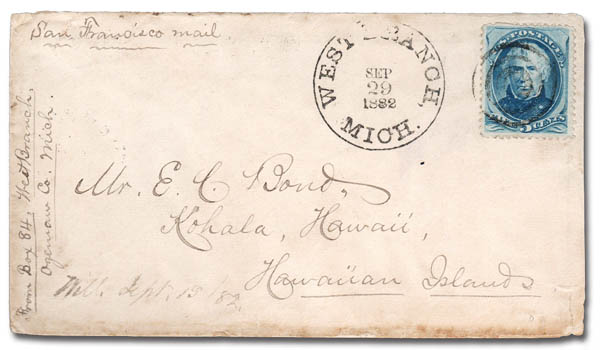 San Francisco mail.
WEST BRANCH,
SEP
29
1882
MICH.
POSTAGE
5 CENTS
From Box 84. West Branch,
Ogemaw Co. Mich.
Mr. E. C. Bond,
Kohala, Hawaii,
Hawaiian Islands
Sept. 15 /82